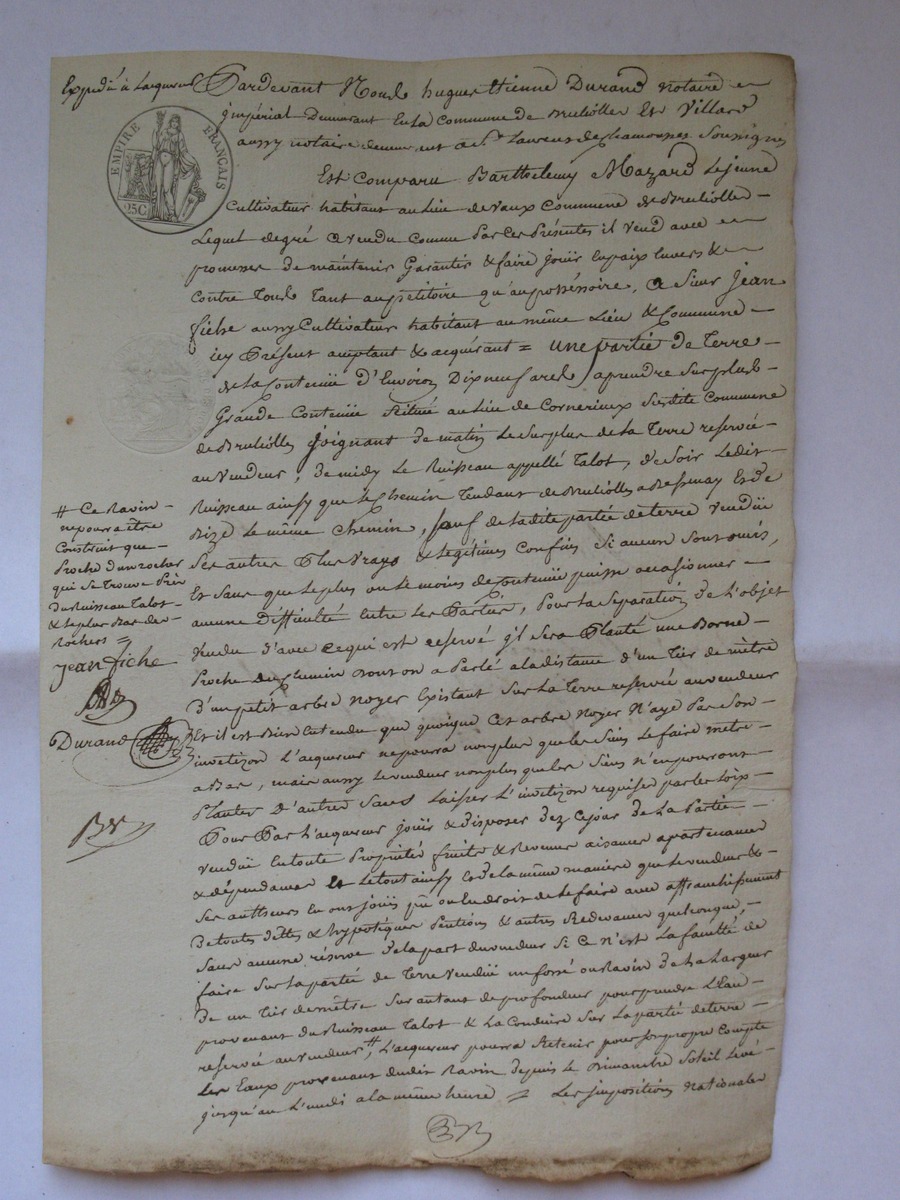 Expédié à Lacquereur
EMPIRE FRANÇAIS
25C
Pardevant Nous hugues Etienne Durand notaire
jmpérial Demeurant En La Commune de Brulioller Et Villard
aussy notaire demeurant a St. Laurent de Chamousset Soussignés
Est Comparu Barthelemy Mazard Lejeune
Cultivateur habitant au Lieu de Vaux Commune de Brulioller
Lequel de gré a vendu Comme Par Ces Présentes il Vend avec
promesse de maintenir Garantir & faire jouir En paix Envers &
Contre Tous Tant au petitoire qu'au possessoire, a Sieur Jean
fiche aussy Cultivateur habitant au même Lieu & Commune
icy Présent aceptant & acquérant = une partie de Terre
de La Contenüe d'Environ Dixneuf ares a prendre Sur plus
Grande Contenüe Scituée au Lieu de Cornerieux Susdite Commune
de Brulioller Joignant de matin Le Surplus de La Terre reservée
au Vendeur, de midy Le Ruisseau appellé Talot, de Soir Ledit
Ruisseau ainsy que le Chemin Tendant de Brulioller a Bessenay Et de
Bize Le même Chemin, Sauf de Ladite partie de terre Vendüe
Ses autres Plus Vrays & Légitimes Confins Si aucun Sont omis,
Et Sans que Le plus ou Le moins de Contenüe puisse occasionner
aucune Difficulté Entre Les Parties, Pour La Separation de L'objet
Vendu d'avec ce qui est reservé il Sera Planté une Borne
Proche du Chemin Dont on a Parlé a la distance d'un Tier de mètre
D'un petit arbre noyer Existant Sur La Terre reservée au vendeur
Et il est Bien Entendu que quoique Cet arbre Noyer N'aye Pas Son
invetizon L'acquereur ne poura non plus que les Siens Le faire metre
a Bas, mais aussy Le vendeur non plus que les Siens n'en pourront
Planter D'autres Sans Laisser L'invetizon requise par les Loix
Pour Par L'acquereur jouir & disposer dez Ce jour de La Partie
Vendüe En toute Propriété fruits & Revenus aisances apartenances
& dépendances Et Le tout ainsy Et de la même manière que Le vendeur &
Ses autheurs En ont joüi pû ou Eu droit de Le faire avec affranchissement
De toutes dettes & hypotèques Pentions & autres Redevances quelconque,
Sans aucune réserve de la part du vendeur Si Ce n'est La faculté de
faire Sur La partie de Terre Vendüe un fossé ou Ravin de La Largeur
De un Tier de mètre Sur autant de profondeur pour prendre L'Eau
provenant du Ruisseau Talot & La Conduire Sur La partie de terre
reservée au vendeur #, L'acquereur pourra Retenir pour Son propre Compte
Les Eaux provenant dudit Ravin depuis Le Dimanche Soleil Levé
jusqu'au Lundi a la même heure = Les jmpositions Nationales
# Ce Ravin
ne poura être
Construit que
Proche d'un rocher
qui Se Trouve Près
du Ruisseau Talot
& Le plus Bas des
Rochers =
jean fiche
Durand